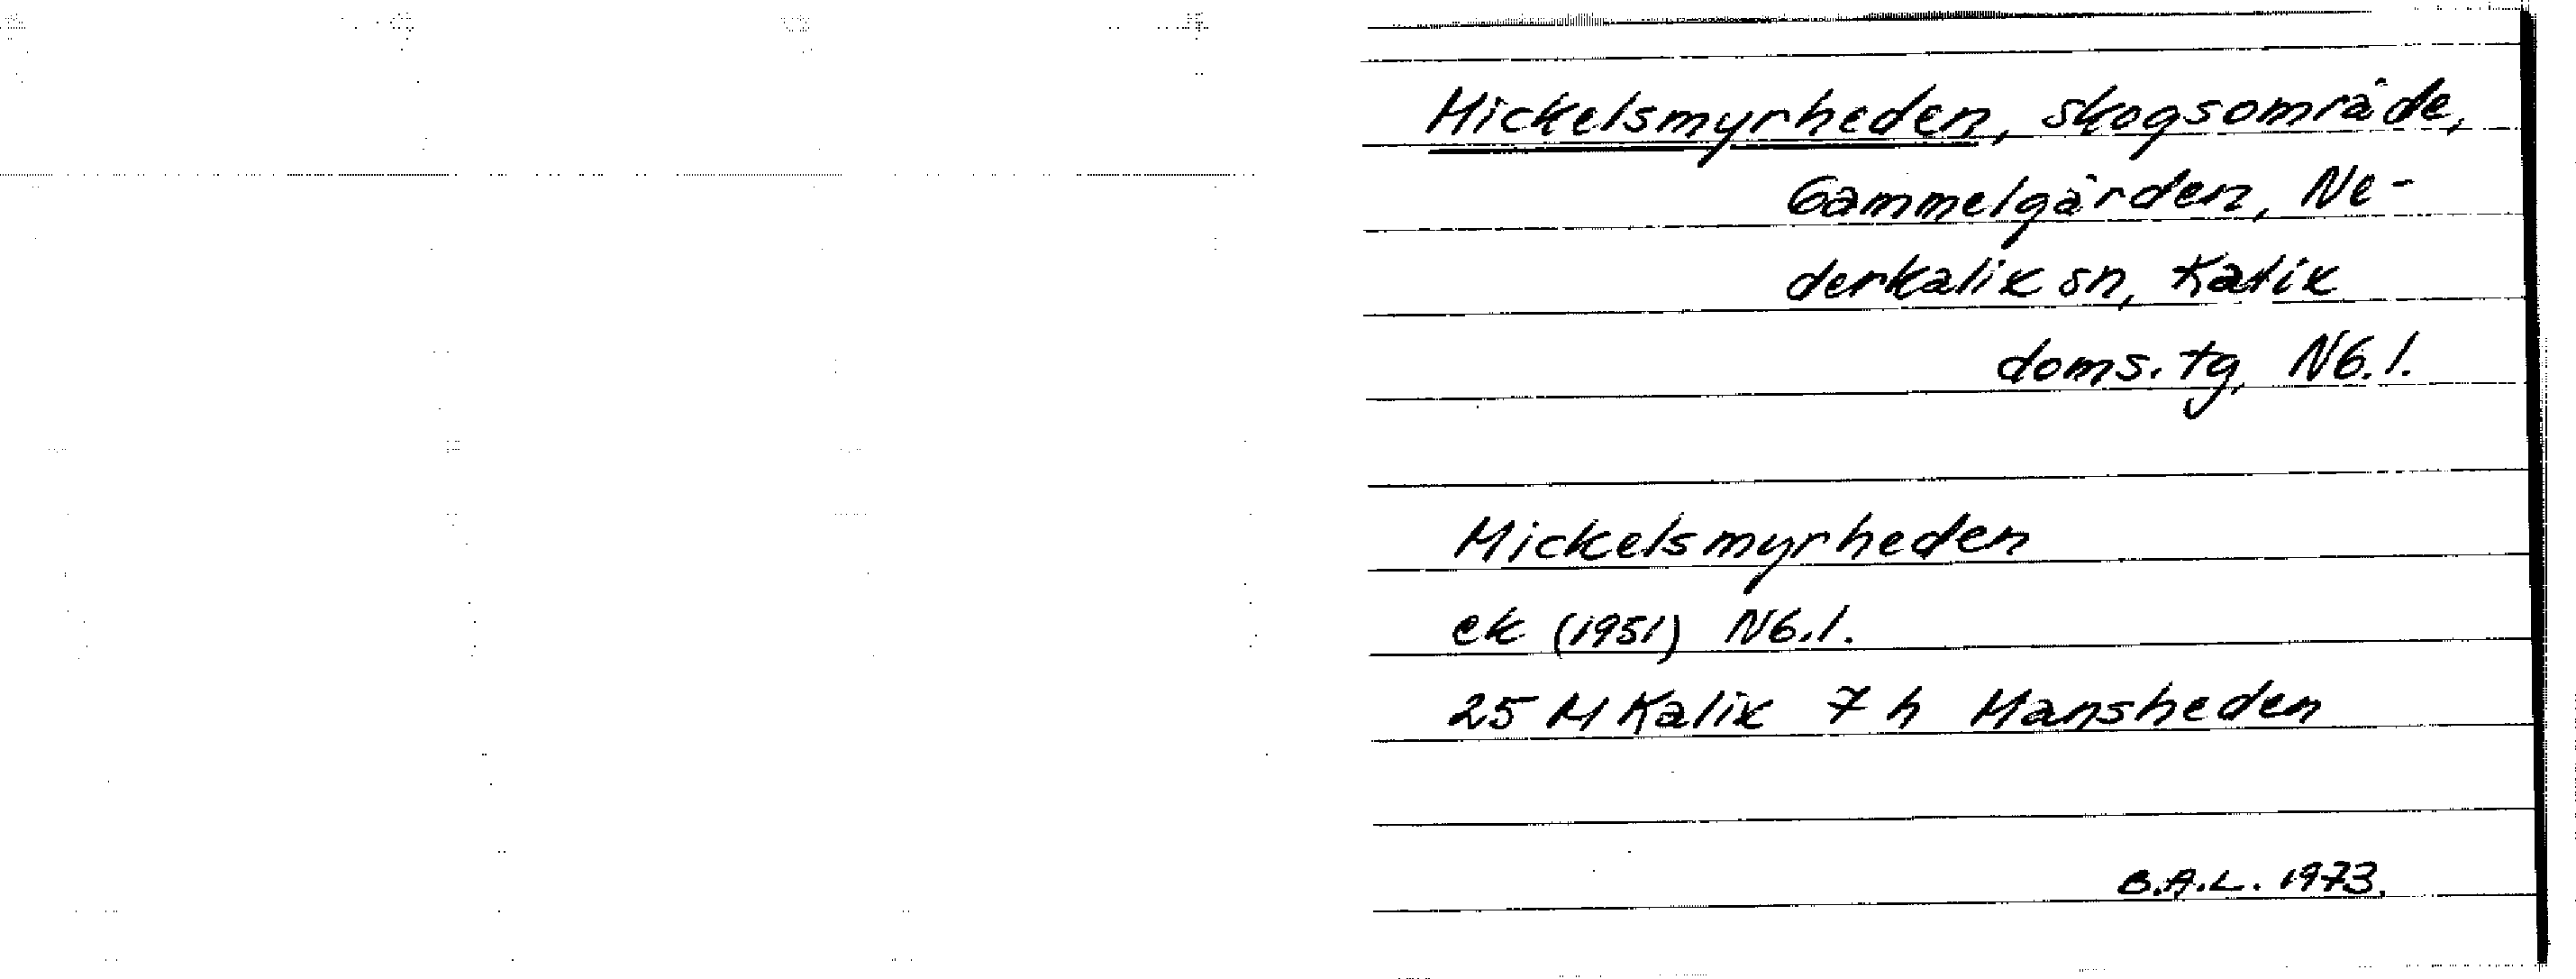 Mickelsmyrheden, skogsområde,
Gammelgården, Ne-
derkalix sn, Kalix
doms. tg, Nb. l.
Mickelsmyrheden
ek (1951) Nb. l.
25 M Kalix 7 h Mansheden
B.A.L. 1973.